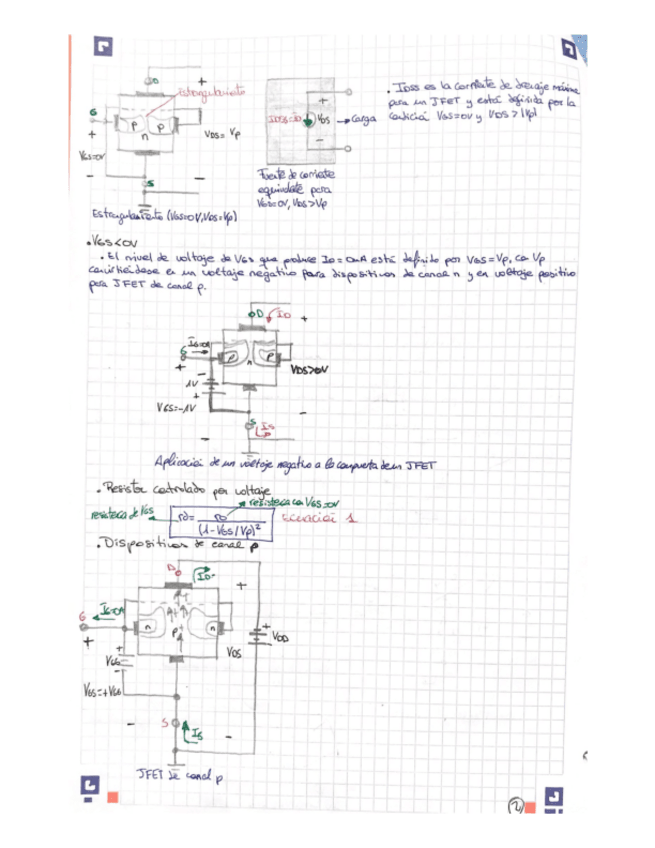 D
+
Estrangulamiento
G
+
P
P
n
VDS= Vp
VGS=0V
-
S
-
Estrangulamiento (VGS=0V, VDS=Vp)
IDSS=ID
+
VDS
-
Carga
Fuente de corriente
equivalente para
VGS=0V, VDS>Vp
. IDSS es la corriente de drenaje máxima
para un JFET y está definida por la
condición VGS=0V y VDS>|Vp|
. VGS<0V
. El nivel de voltaje de VGS que produce ID=0mA está definido por VGS=Vp, con Vp
convirtiéndose en un voltaje negativo para dispositivos de canal n y en voltaje positivo
para JFET de canal p.
D
ID
+
IG=0A
G
+
P
n
P
VDS>0V
-
1V
+
VGS=-1V
-
S
IS
-
Aplicación de un voltaje negativo a la compuerta de un JFET
. Resistor controlado por voltaje
resistencia con VGS=0V
resistencia de VGS
rd= ro
(1-VGS/Vp)²
Ecuación 1
. Dispositivos de canal p
D
ID
+
G
IG=0A
+
n
n
P
+
VDD
VDS
+
VGG
-
VGS=+VGG
-
S
IS
-
JFET de canal p
2